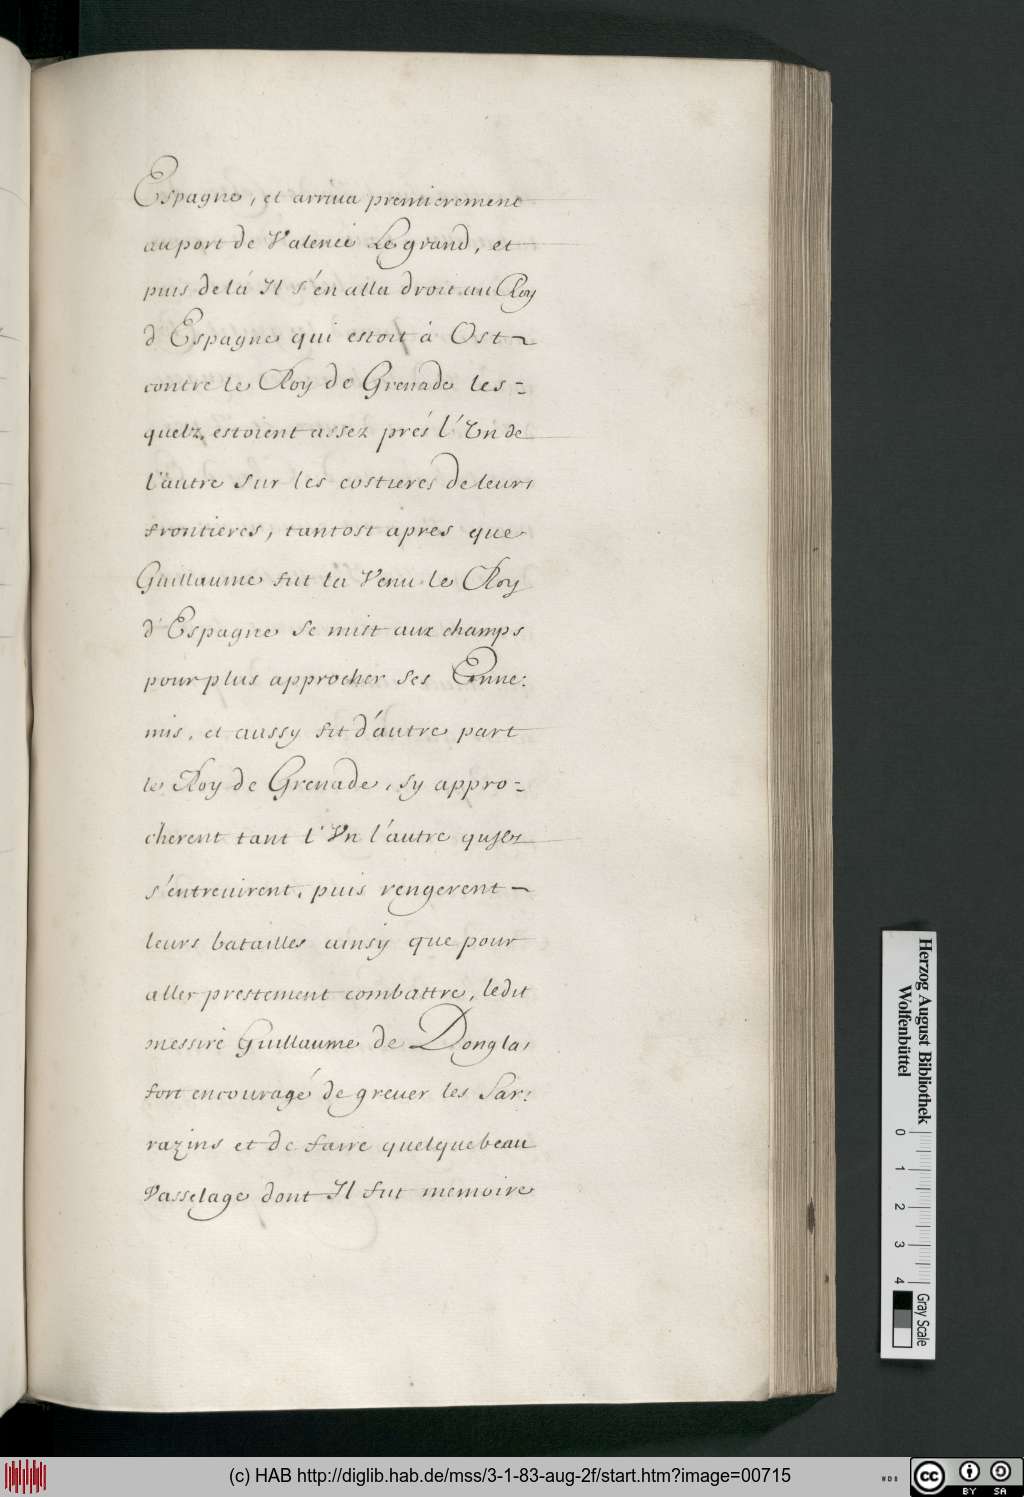 Espagne, et arriua premierement
au port de Valence Le grand, et
puis de lá Il s'én alla droit au Roy
d'Espagne qui estoit à Ost ~
contre le Roy de Grenade les=
quelz estoient assez prés l'Vn de
l'autre sur les costieres de leurs
frontieres, tantost apres que
Guillaume fut la Venu le Roy
d'Espagne se mist aux champs
pour plus approcher ses Enne:
mis, et aussy fit d'autre part
le Roy de Grenade, sy appro=
cherent tant l'Vn l'autre qu'Ilz
s'entreuirent, puis rengerent ~
leurs batailles ainsy que pour
aller prestement combattre, ledit
messire Guillaume de Donglas
fort encouragé de greuer les Sar:
razins et de faire quelque beau
Vasselage dont Il fut memoire
Herzog August Bibliothek
Wolfenbüttel
0 1 2 3 4
Gray Scale
(c) HAB http://diglib.hab.de/mss/3-1-83-aug-2f/start.htm?image=00715
WDB
cc BY SA